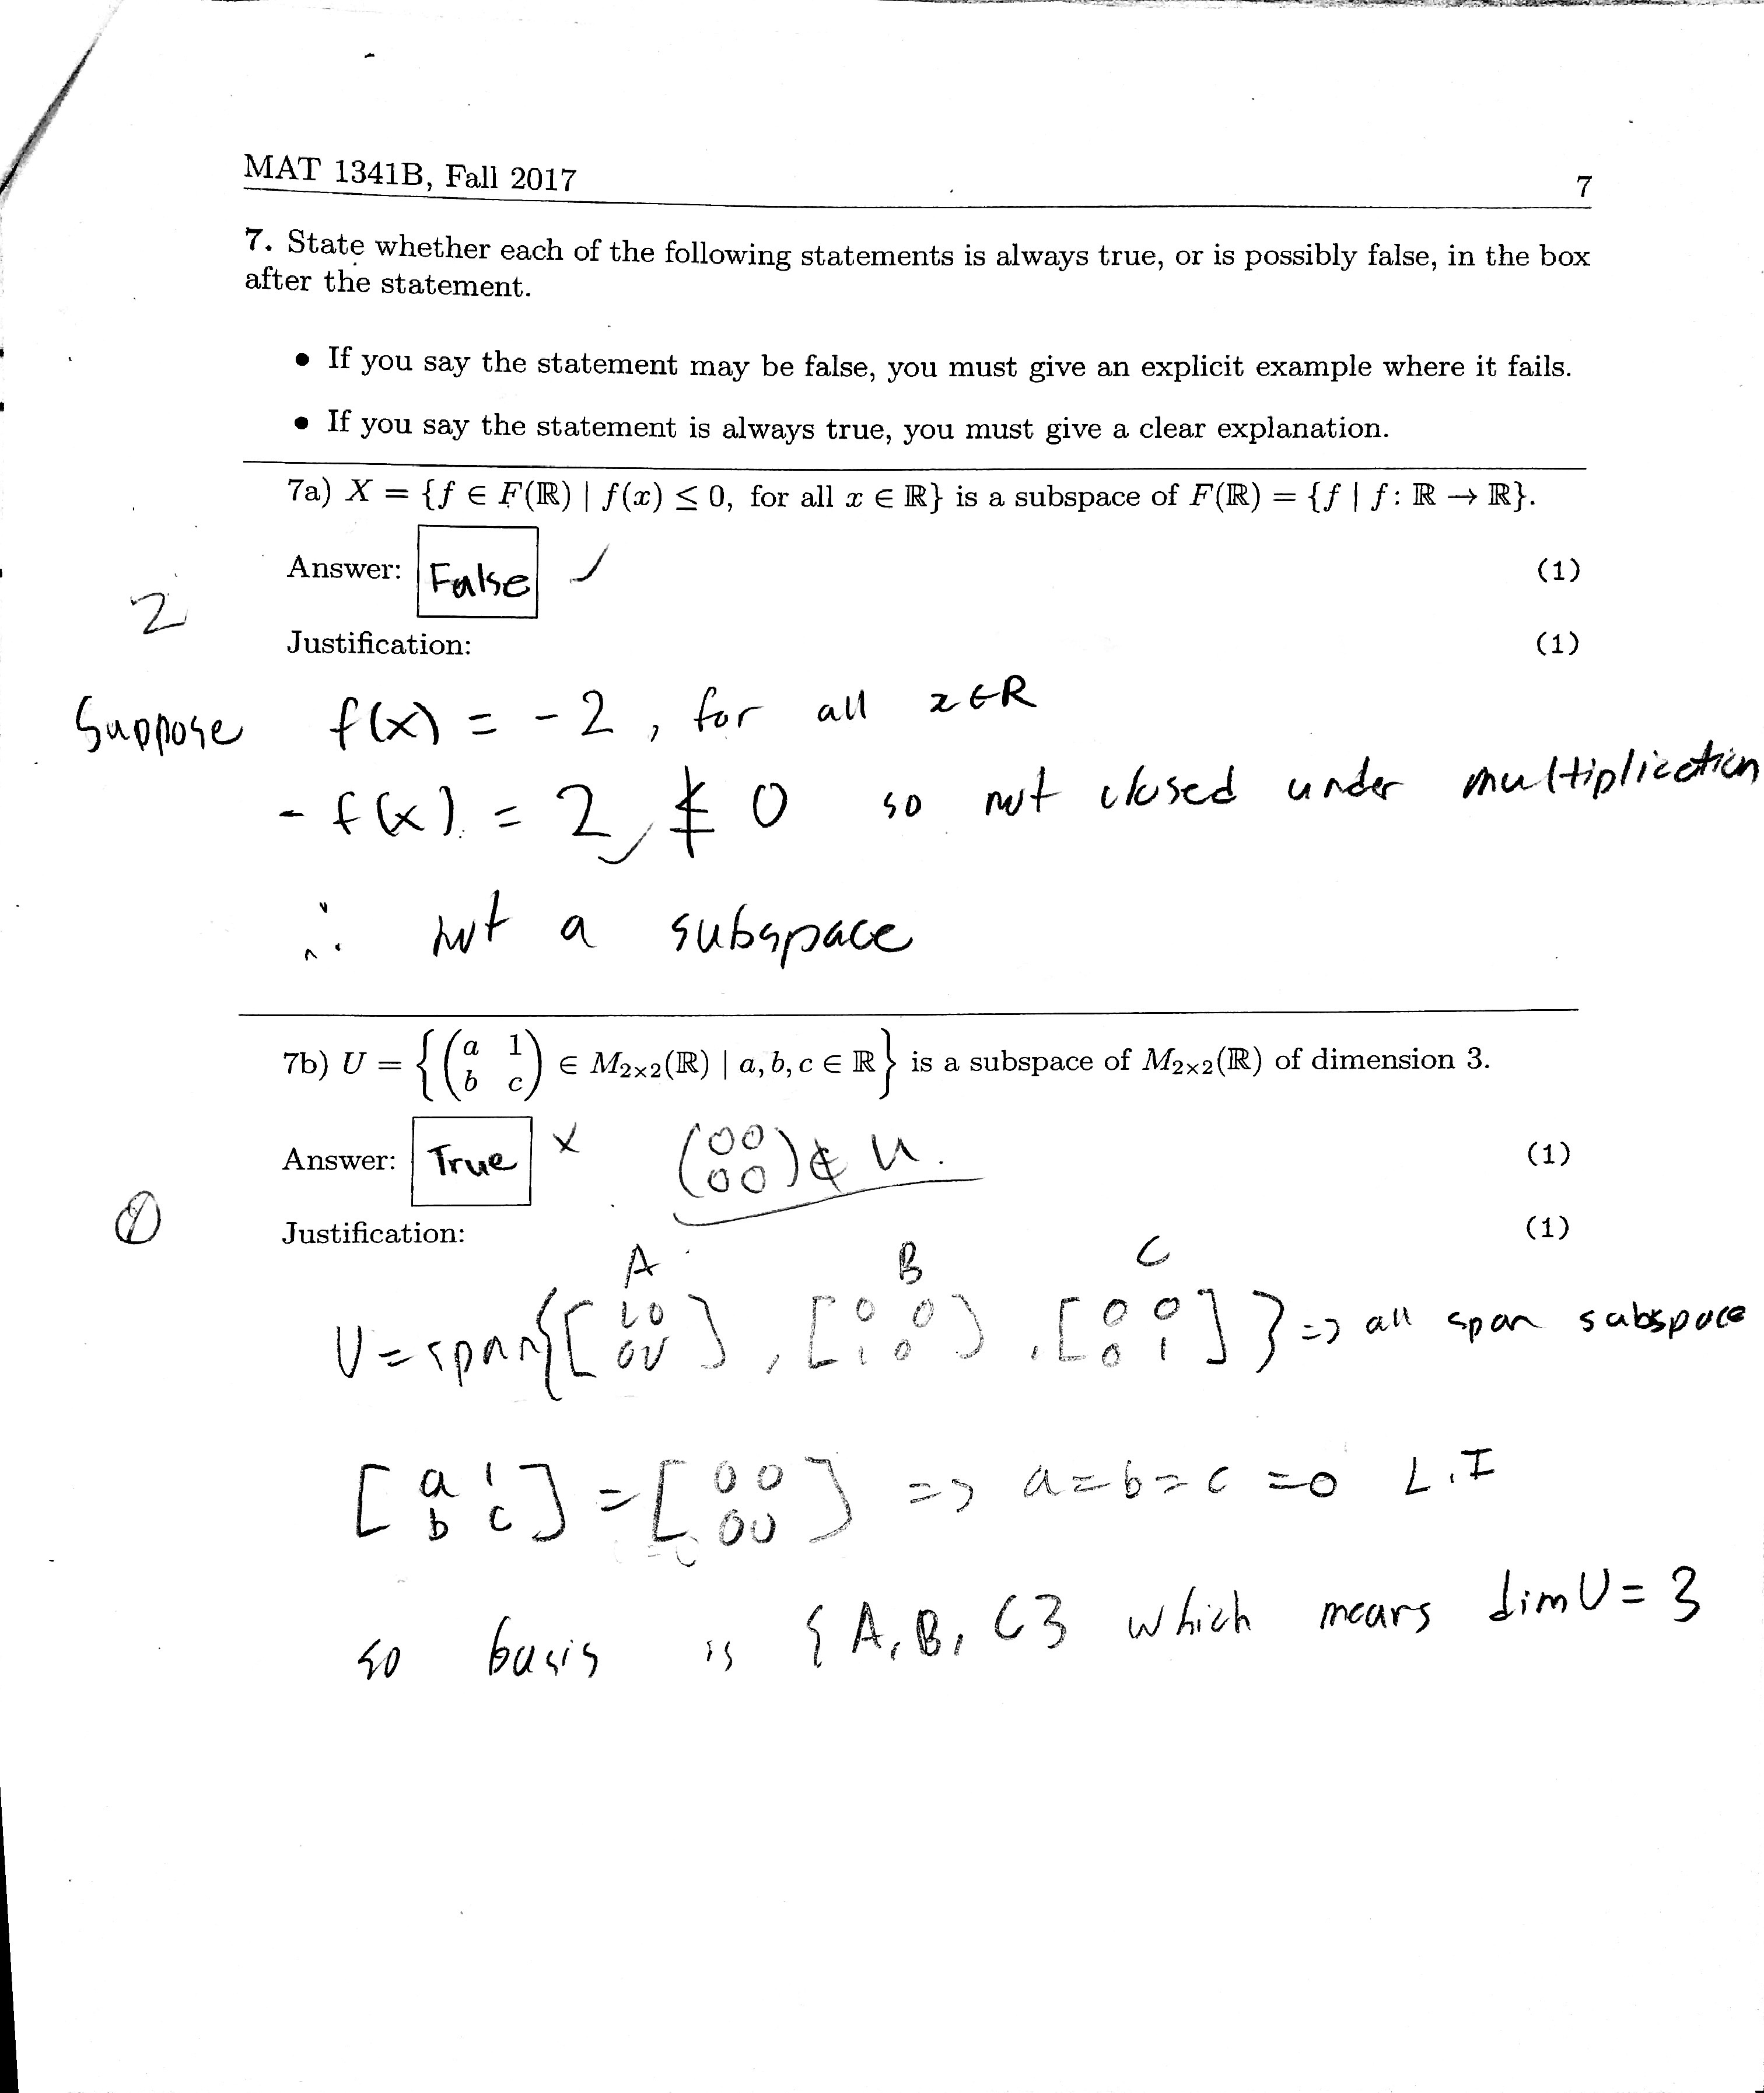 MAT 1341B, Fall 2017 7
7. State whether each of the following statements is always true, or is possibly false, in the box
after the statement.
• If you say the statement may be false, you must give an explicit example where it fails.
• If you say the statement is always true, you must give a clear explanation.
7a) X = {f ∈ F(ℝ) | f(x) ≤ 0, for all x ∈ ℝ} is a subspace of F(ℝ) = {f | f : ℝ → ℝ}.
Answer: False ✓ (1)
2
Justification: (1)
Suppose f(x) = -2, for all x∈R
-f(x) = 2 ≰ 0 so not closed under multiplication
∴ not a subspace
7b) U = { ( a 1 ; b c ) ∈ M₂ₓ₂(ℝ) | a, b, c ∈ ℝ } is a subspace of M₂ₓ₂(ℝ) of dimension 3.
Answer: True x ( 0 0 ; 0 0 ) ∉ U. (1)
Justification: (1)
A B C
U = span{ [ 1 0 ; 0 0 ], [ 0 0 ; 1 0 ], [ 0 0 ; 0 1 ] } => all span subspace
[ a 1 ; b c ] = [ 0 0 ; 0 0 ] => a=b=c=0 L.I
so basis is {A, B, C} which means dim U = 3